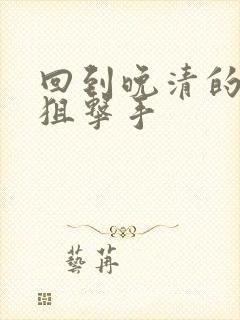 回到晚清的
狙擊手
藝苒